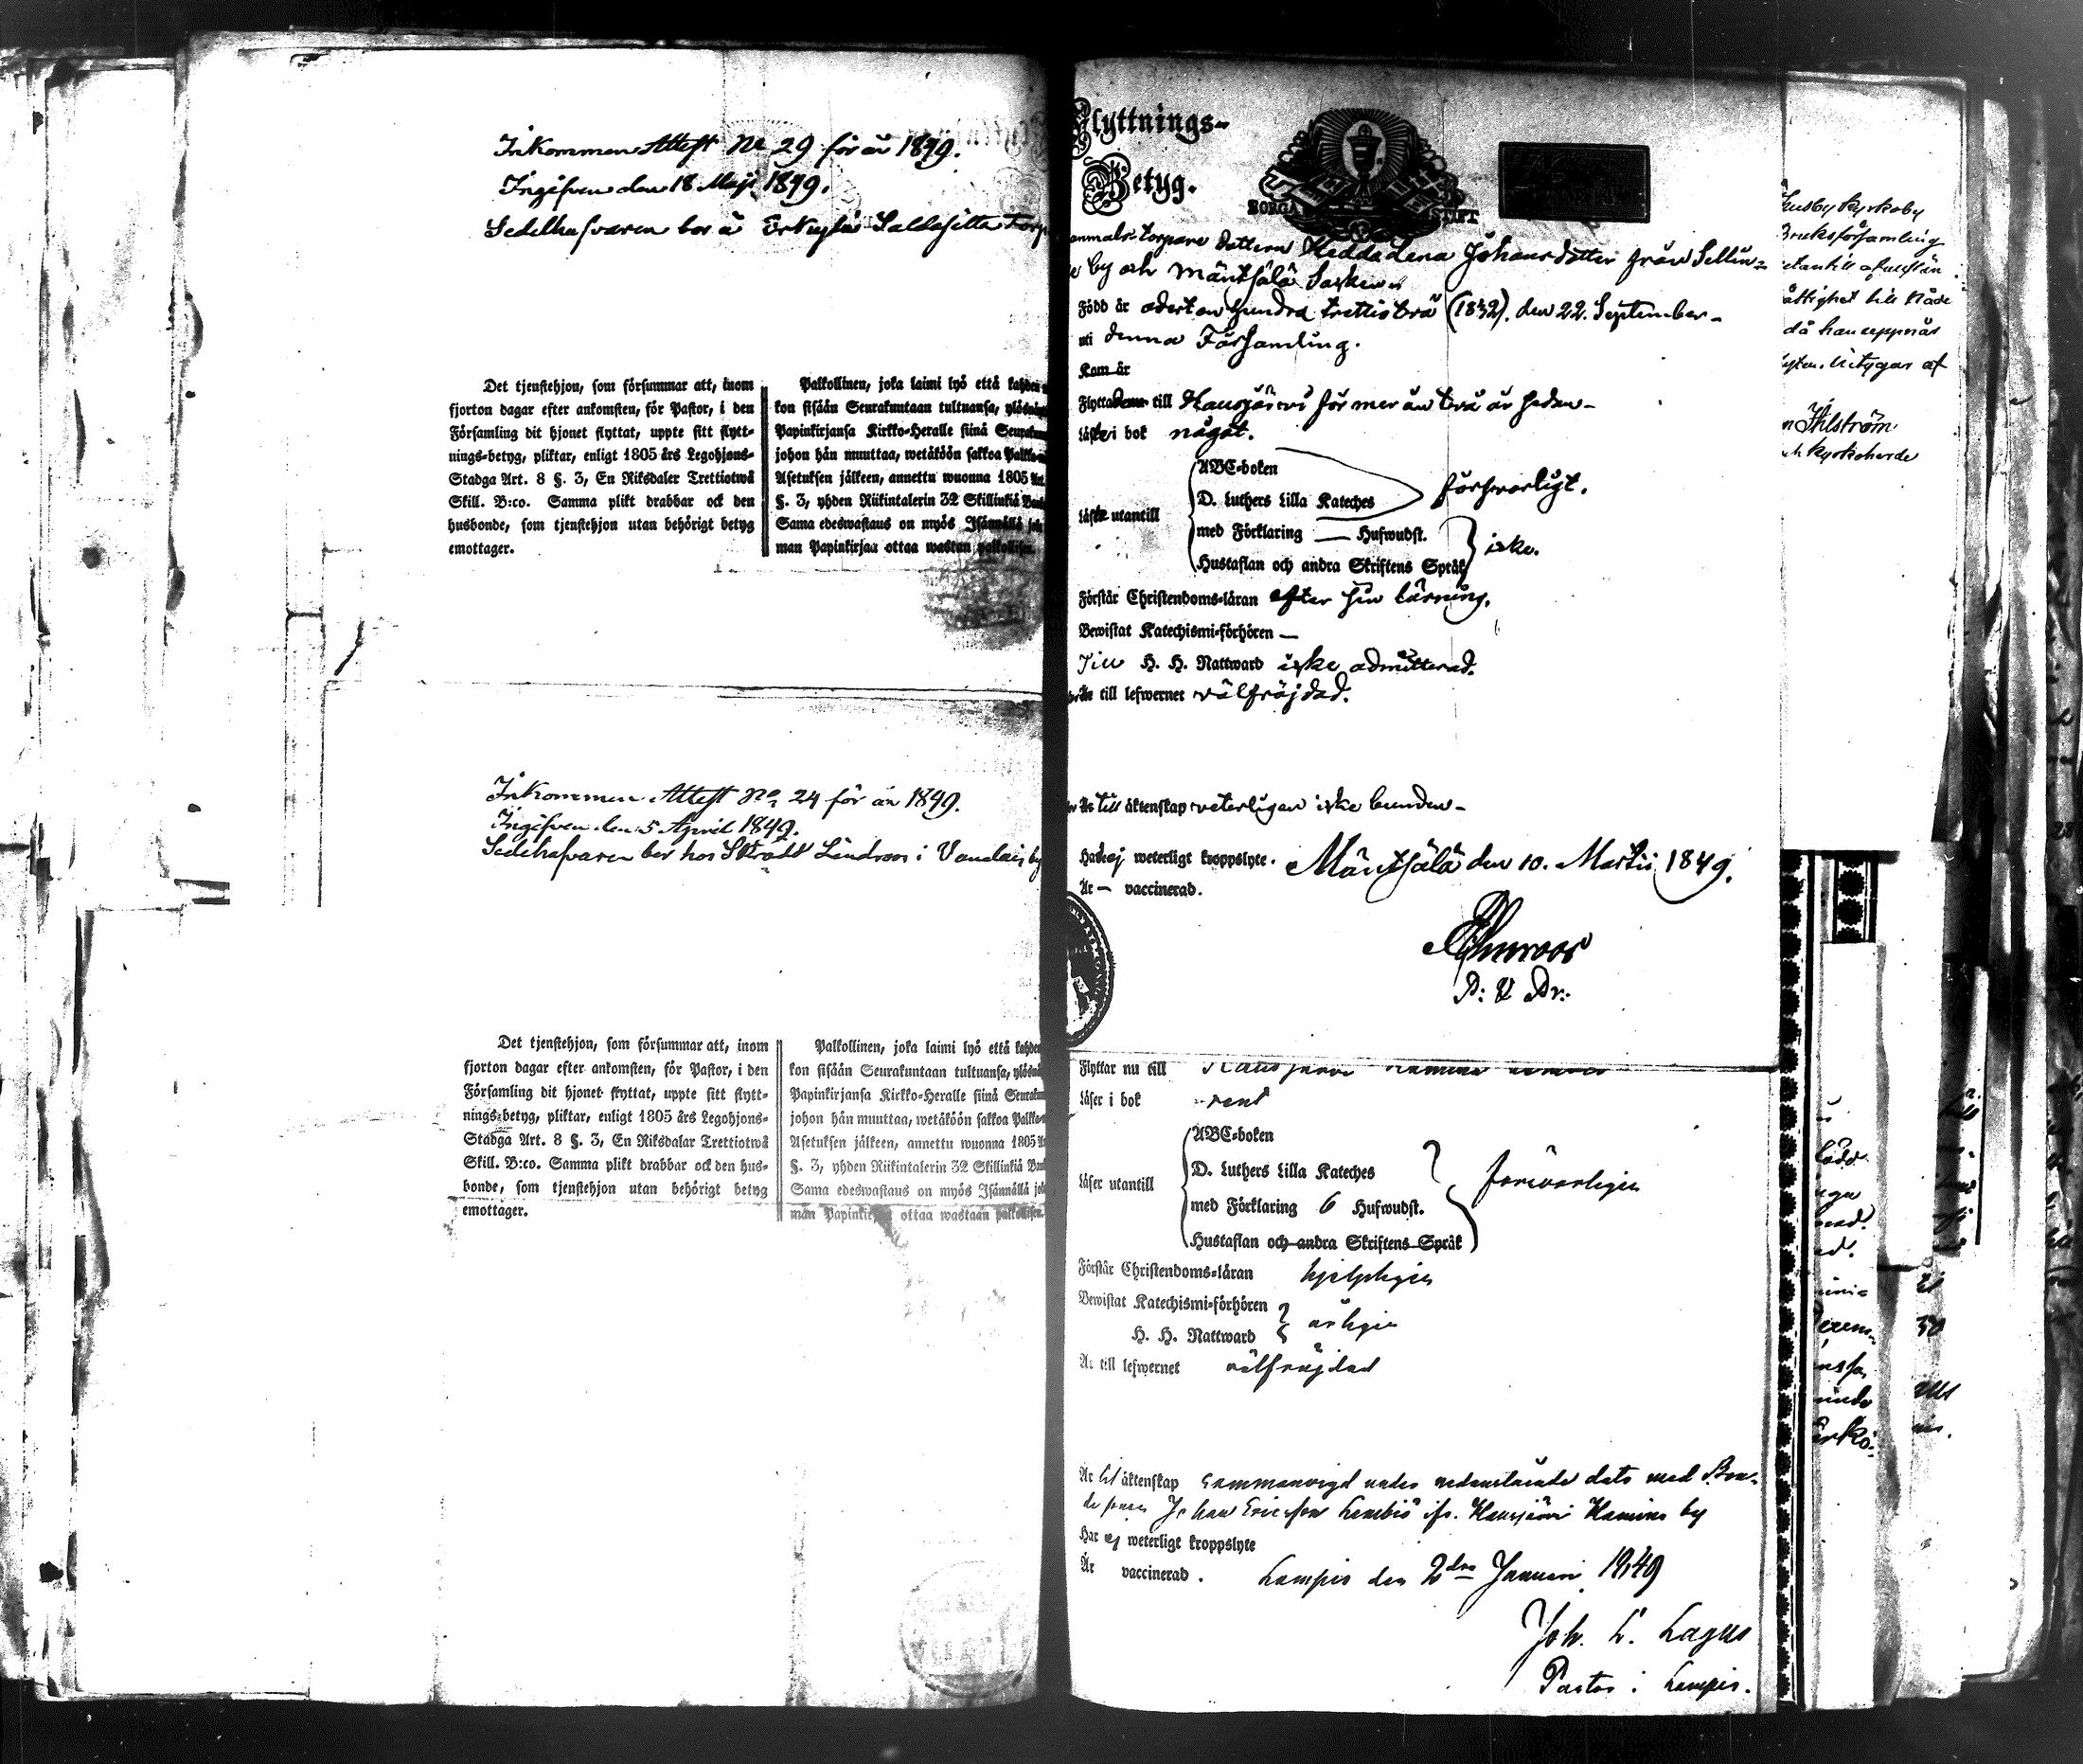 Inkommen Attest No 29 för år 1849.
Ingifven den 18 Maji 1849.
Sedelhafvaren bor å Erkylä Saldasilta Torp
Det tjenstehjon, som försummar att, inom
fjorton dagar efter ankomsten, för Pastor, i den
Församling dit hjonet flyttat, uppte sitt flytt-
nings-betyg, pliktar, enligt 1805 års Legohjons-
Stadga Art. 8 §. 3, En Riksdaler Trettiotwå
Skill. B:co. Samma plikt drabbar ock den
husbonde, som tjenstehjon utan behörigt betyg
emottager.
Palkollinen, joka laimi lyö että kahden
kon sisään Seurakuntaan tultuansa, ylösnäy
Papinkirjansa Kirkko-Heralle siinä Seurakun
johon hän muuttaa, wetäköön sakkoa Palkko
Asetuksen jälkeen, annettu wuonna 1805 Art.
§. 3, yhden Riikintalerin 32 Skillinkiä Banko
Sama edeswastaus on myös Isännällä jok
man Papinkirjaa ottaa wastan palkollisen.
Inkommen Attest No 24 för år 1849.
Ingifven den 5 April 1849.
Sedelhafvaren bor hos Lindroos i Vandais by
Det tjenstehjon, som försummar att, inom
fjorton dagar efter ankomsten, för Pastor, i den
Församling dit hjonet flyttat, uppte sitt flytt-
nings-betyg, pliktar, enligt 1805 års Legohjons-
Stadga Art. 8 §. 3, En Riksdalar Trettiotwå
Skill. B:co. Samma plikt drabbar ock den hus-
bonde, som tjenstehjon utan behörigt betyg
emottager.
Palkollinen, joka laimi lyö että kahden
kon sisään Seurakuntaan tultuansa, ylösnä
Papinkirjansa Kirkko-Heralle siinä Seurakun
johon hän muuttaa, wetäköön sakkoa Palkko-
Asetuksen jälkeen, annettu wuonna 1805 Ar
§. 3, yhden Riikintalerin 32 Skillinkiä Ban
Sama edeswastaus on myös Isännällä jok
man Papinkirjaa ottaa wastaan palkollisen.
Flyttnings-
Betyg.
BORGÅ STIFT
anmals-torpare dottern Hedda Lena Johansdotter från Sellin-
e by och Mäntsälä Socken
Född år adertonhundra trettiotvå (1832). den 22. September-
uti denna Församling.
Kom år
Flyttade till Hausjärvi för mer än två år sedan-
läste i bok något.
läste utantill
ABC-boken
D. Luthers Lilla Kateches försvarligt.
med Förklaring — Hufwudst.
Hustaflan och andra Skriftens Språk icke.
Förstår Christendoms-läran efter sin lärning.
Bewistat Katechismi-förhören —
Till H. H. Nattward icke admitterad.
Är till lefwernet välfrejdad.
Är till äktenskap veterligen icke bunden-
Hade ej weterligt kroppslyte.
Mäntsälä den 10. Martii 1849.
Är — vaccinerad.
Flyttar nu till Hausjärvi
Läser i bok rent
Läser utantill
ABC-boken
D. Luthers Lilla Kateches
med Förklaring 6 Hufwudst. försvarligen
Hustaflan och andra Skriftens Språk
Förstår Christendoms-läran hjelpligen
Bewistat Katechismi-förhören
H. H. Nattward årligen
Är till lefwernet välfrejdad
Är till äktenskap sammanvigd under nedanstående dato med Bon-
de sonen Johan Ericsson ifr. Hausjärvi by
Har ej weterligt kroppslyte
Är vaccinerad.
Lampis den 2dra Januari 1849
Joh. L. Lagus
Pastor i Lampis.